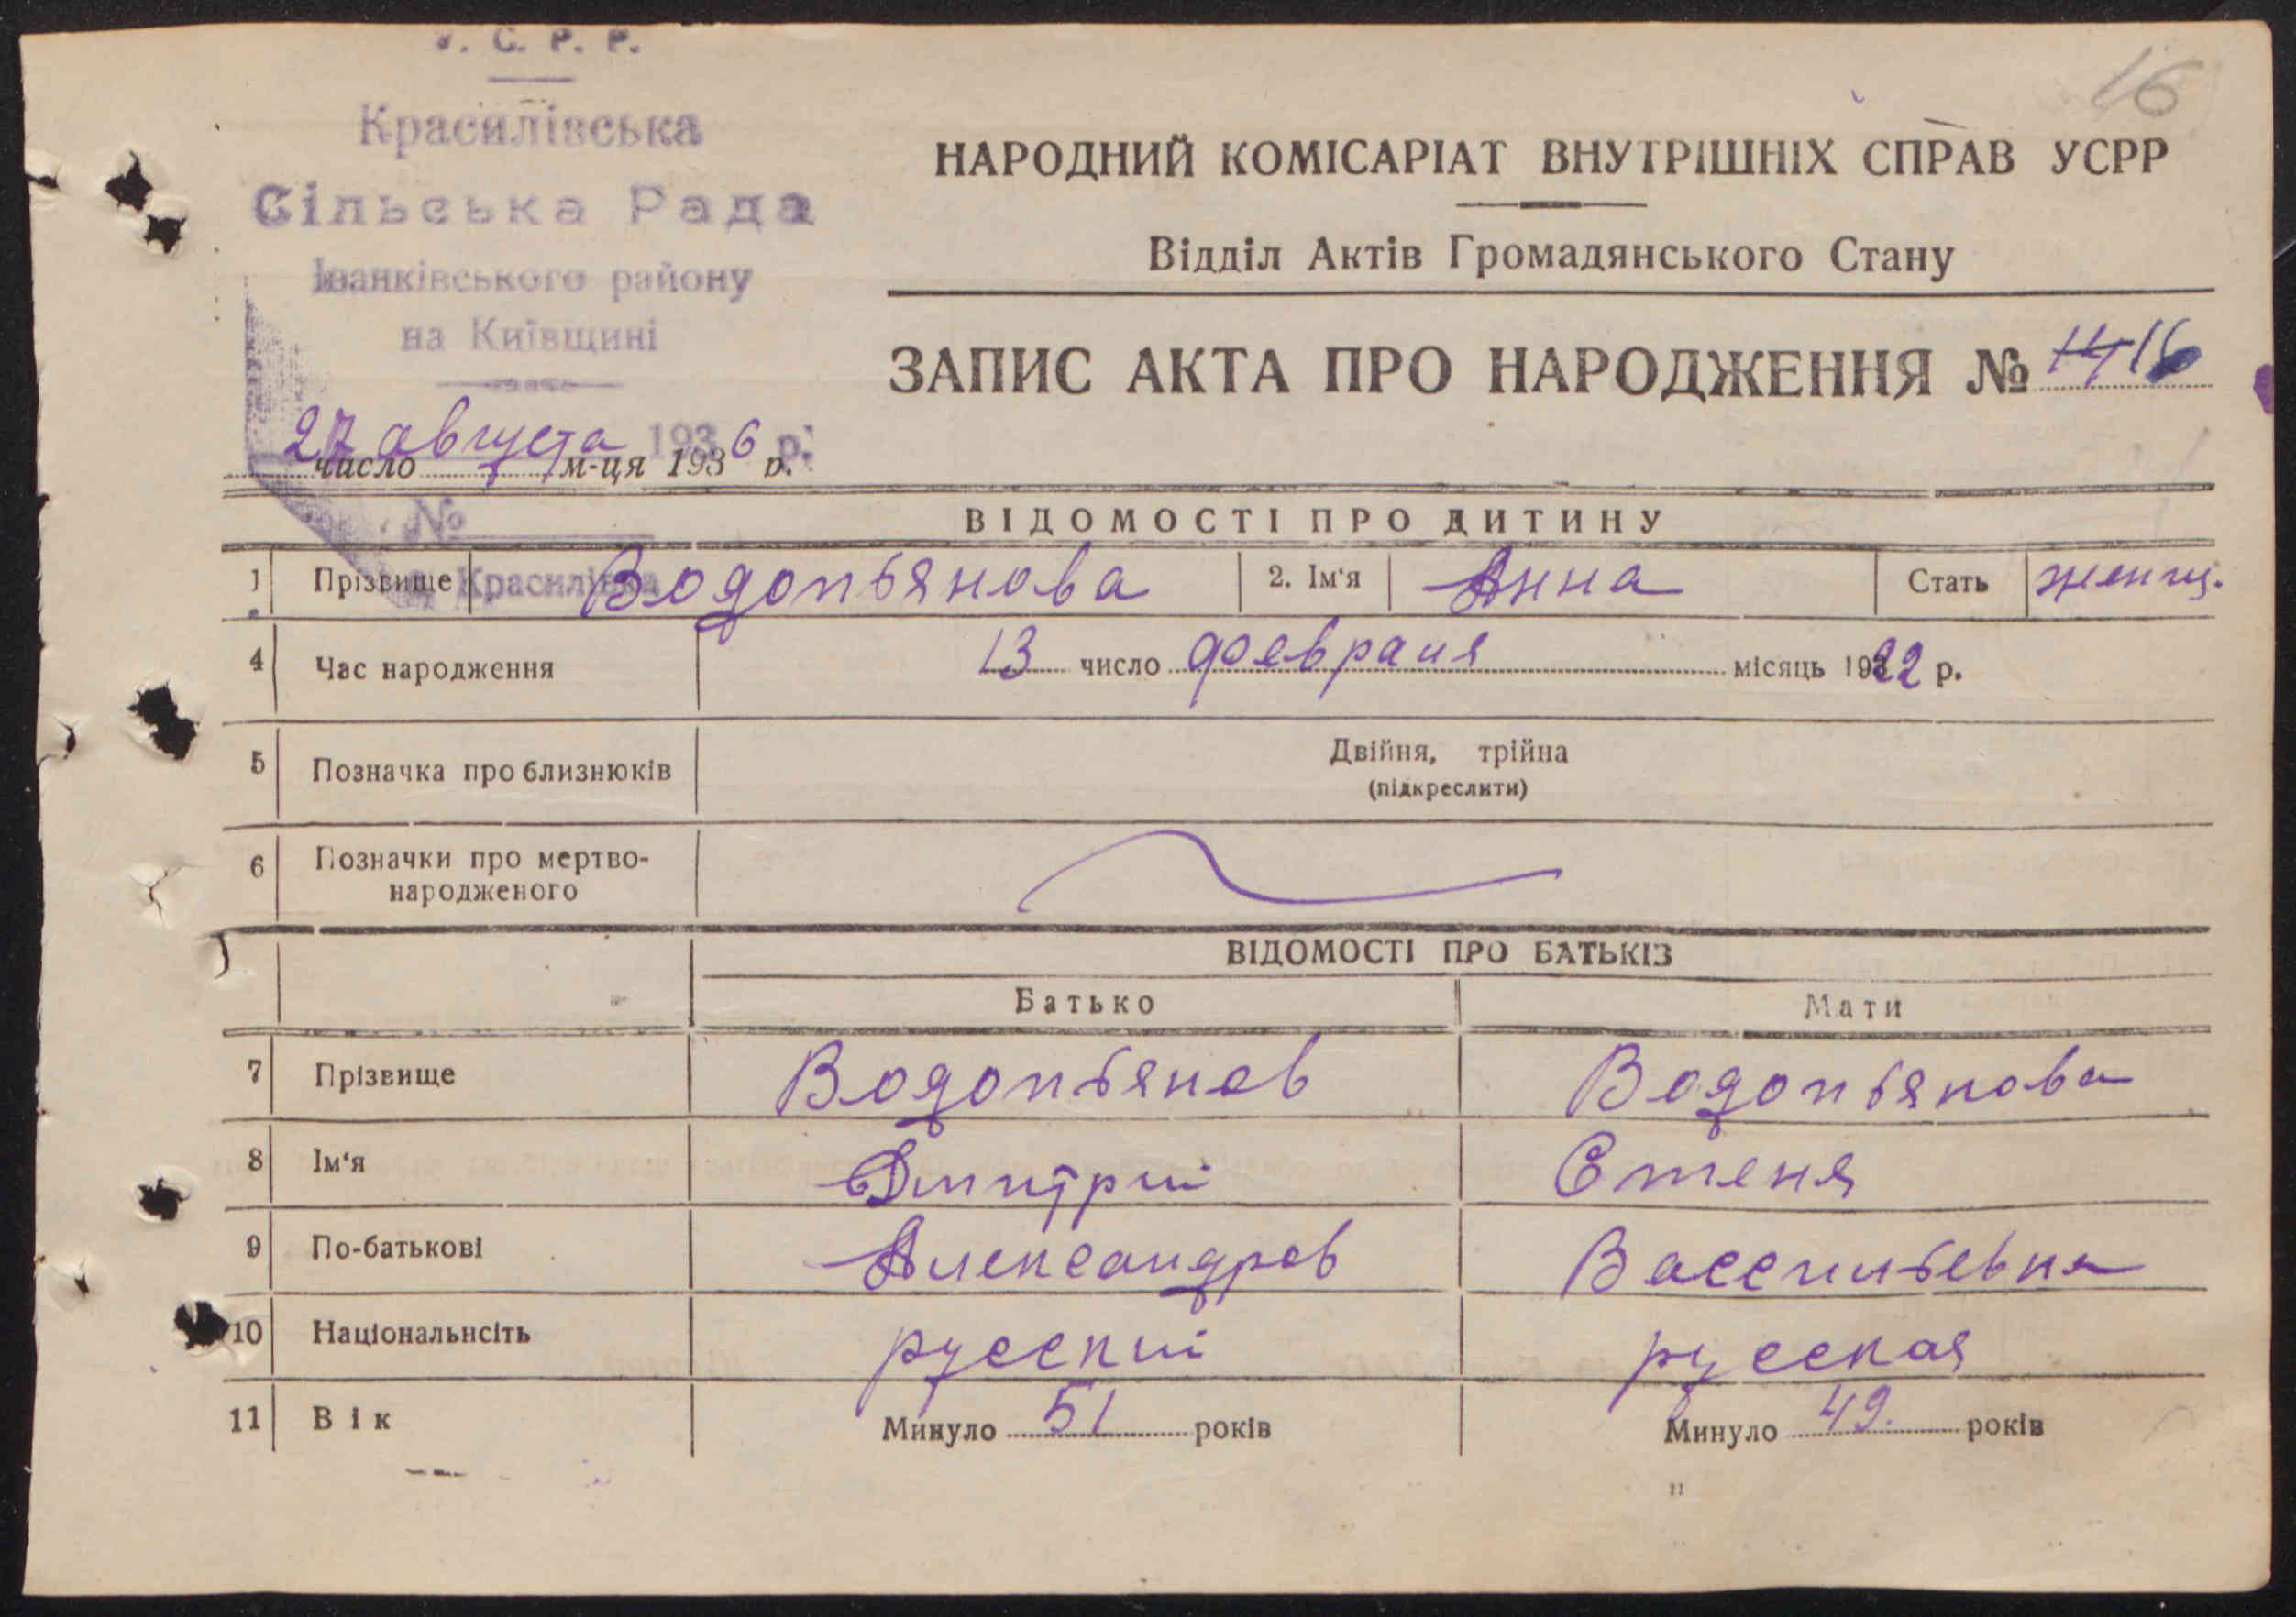 У. С. Р. Р.
16
Красилівська
Сільська Рада
Іванківського району
на Київщині
НАРОДНИЙ КОМІСАРІАТ ВНУТРІШНІХ СПРАВ УСРР
Відділ Актів Громадянського Стану
ЗАПИС АКТА ПРО НАРОДЖЕННЯ № 16
27 августа 1936 р.
число м-ця 1936 р.
№
ВІДОМОСТІ ПРО ДИТИНУ
1 Прізвище Водопьянова 2. Ім'я Анна Стать женщ.
с. Красилівка
4 Час народження 13 число февраля місяць 1922 р.
5 Позначка про близнюків Двійня, трійна
(підкреслити)
6 Позначки про мертво-
народженого
ВІДОМОСТІ ПРО БАТЬКІВ
Батько Мати
7 Прізвище Водопьянов Водопьянова
8 Ім'я Дмитрий
9 По-батькові Александров Васильевна
10 Національнсіть русский русская
11 Вік Минуло 51 років Минуло 49. років